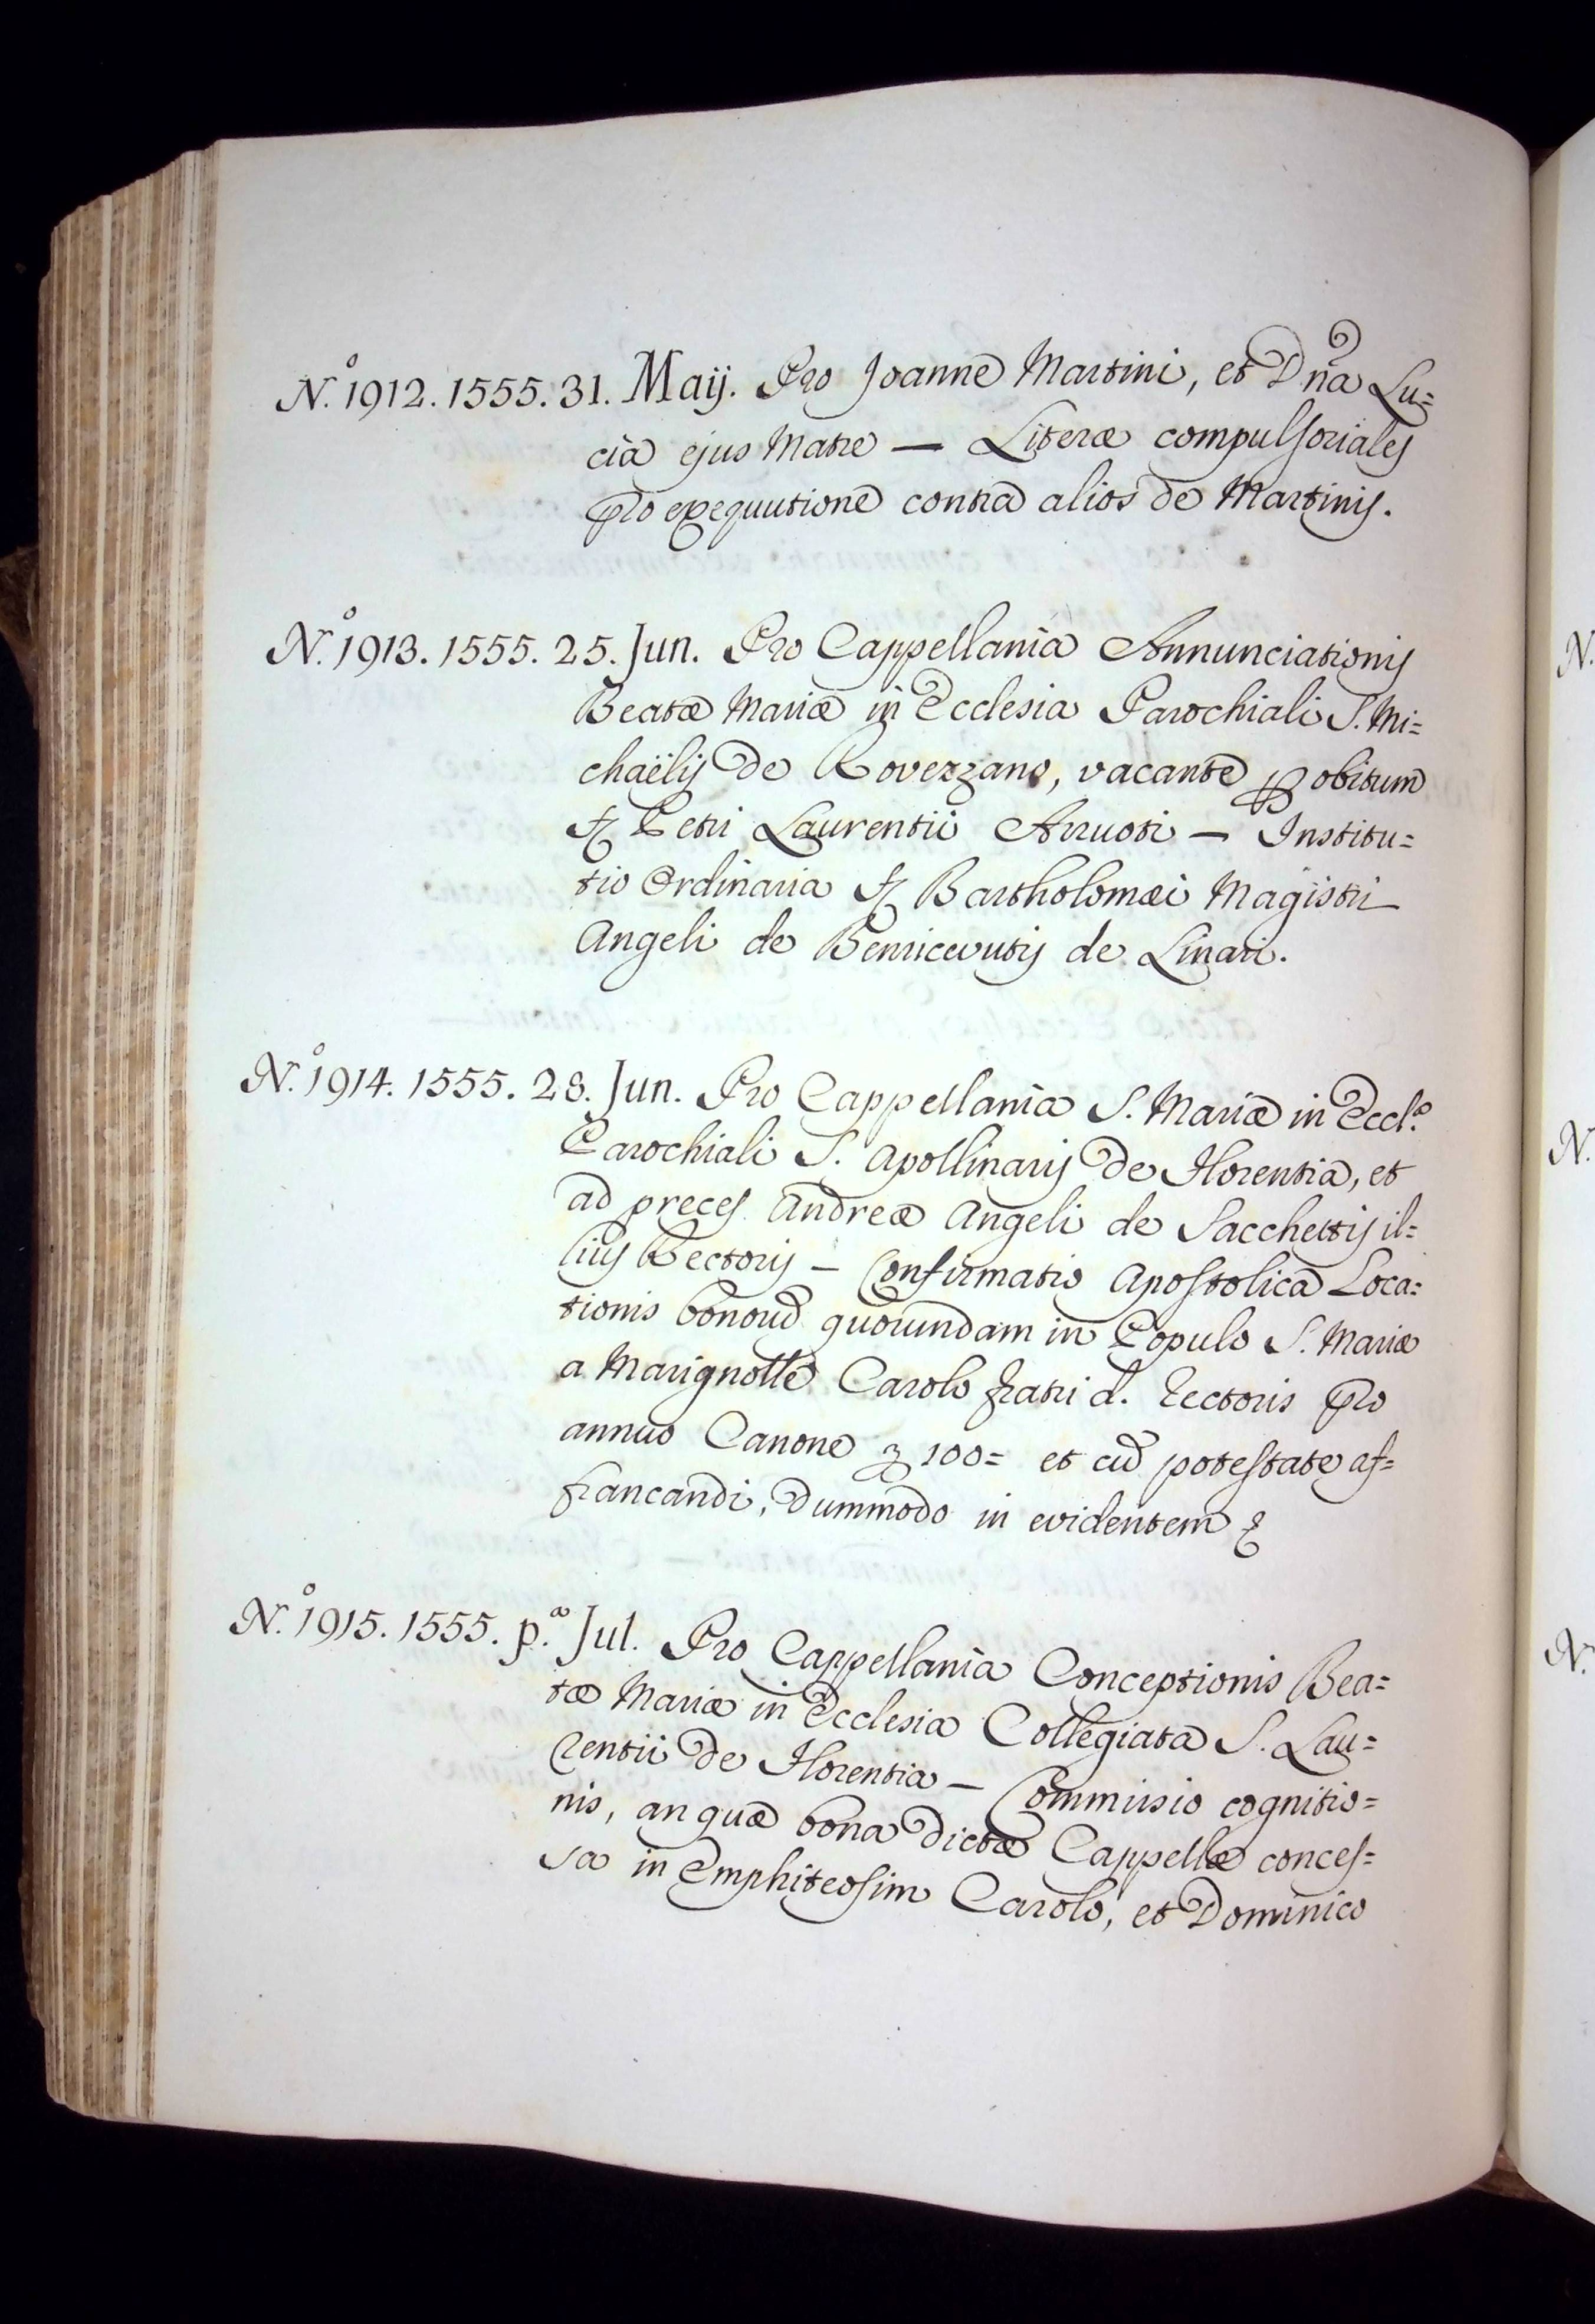 N.º 1912. 1555. 31. Maij. Pro Joanne Martini, et Dña Lu=
cia ejus Matre — Literæ compulsoriales
pro exequutione contra alios de Martinis.
N.º 1913. 1555. 25. Jun. Pro Cappellania Annunciationis
Beatæ Mariæ in Ecclesia Parochiali S. Mi=
chaëlis de Rovezzano, vacante p obitum
Petri Laurentii — Institu=
tio Ordinaria Bartholomæi Magistri
Angeli de de Linari.
N.º 1914. 1555. 28. Jun. Pro Cappellania S. Mariæ in Eccl.ª
Parochiali S. Apollinaris de Florentia, et
ad preces Andreæ Angeli de Sacchettis il=
lius Rectoris — Confirmatio Apostolica Loca=
tionis bonorũ quorundam in Populo S. Mariæ
a Marignolle Carolo fratri d. Rectoris pro
annuo Canone 100= et cũ potestate af=
francandi, dummodo in evidentem
N.º 1915. 1555. p.ª Jul. Pro Cappellania Conceptionis Bea=
tæ Mariæ in Ecclesia Collegiata S. Lau=
rentii de Florentia — Commissio cognitio=
nis, an quæ bona dictæ Cappellæ conces=
sa in Emphiteosim Carolo, et Dominico
N.
N.
N.